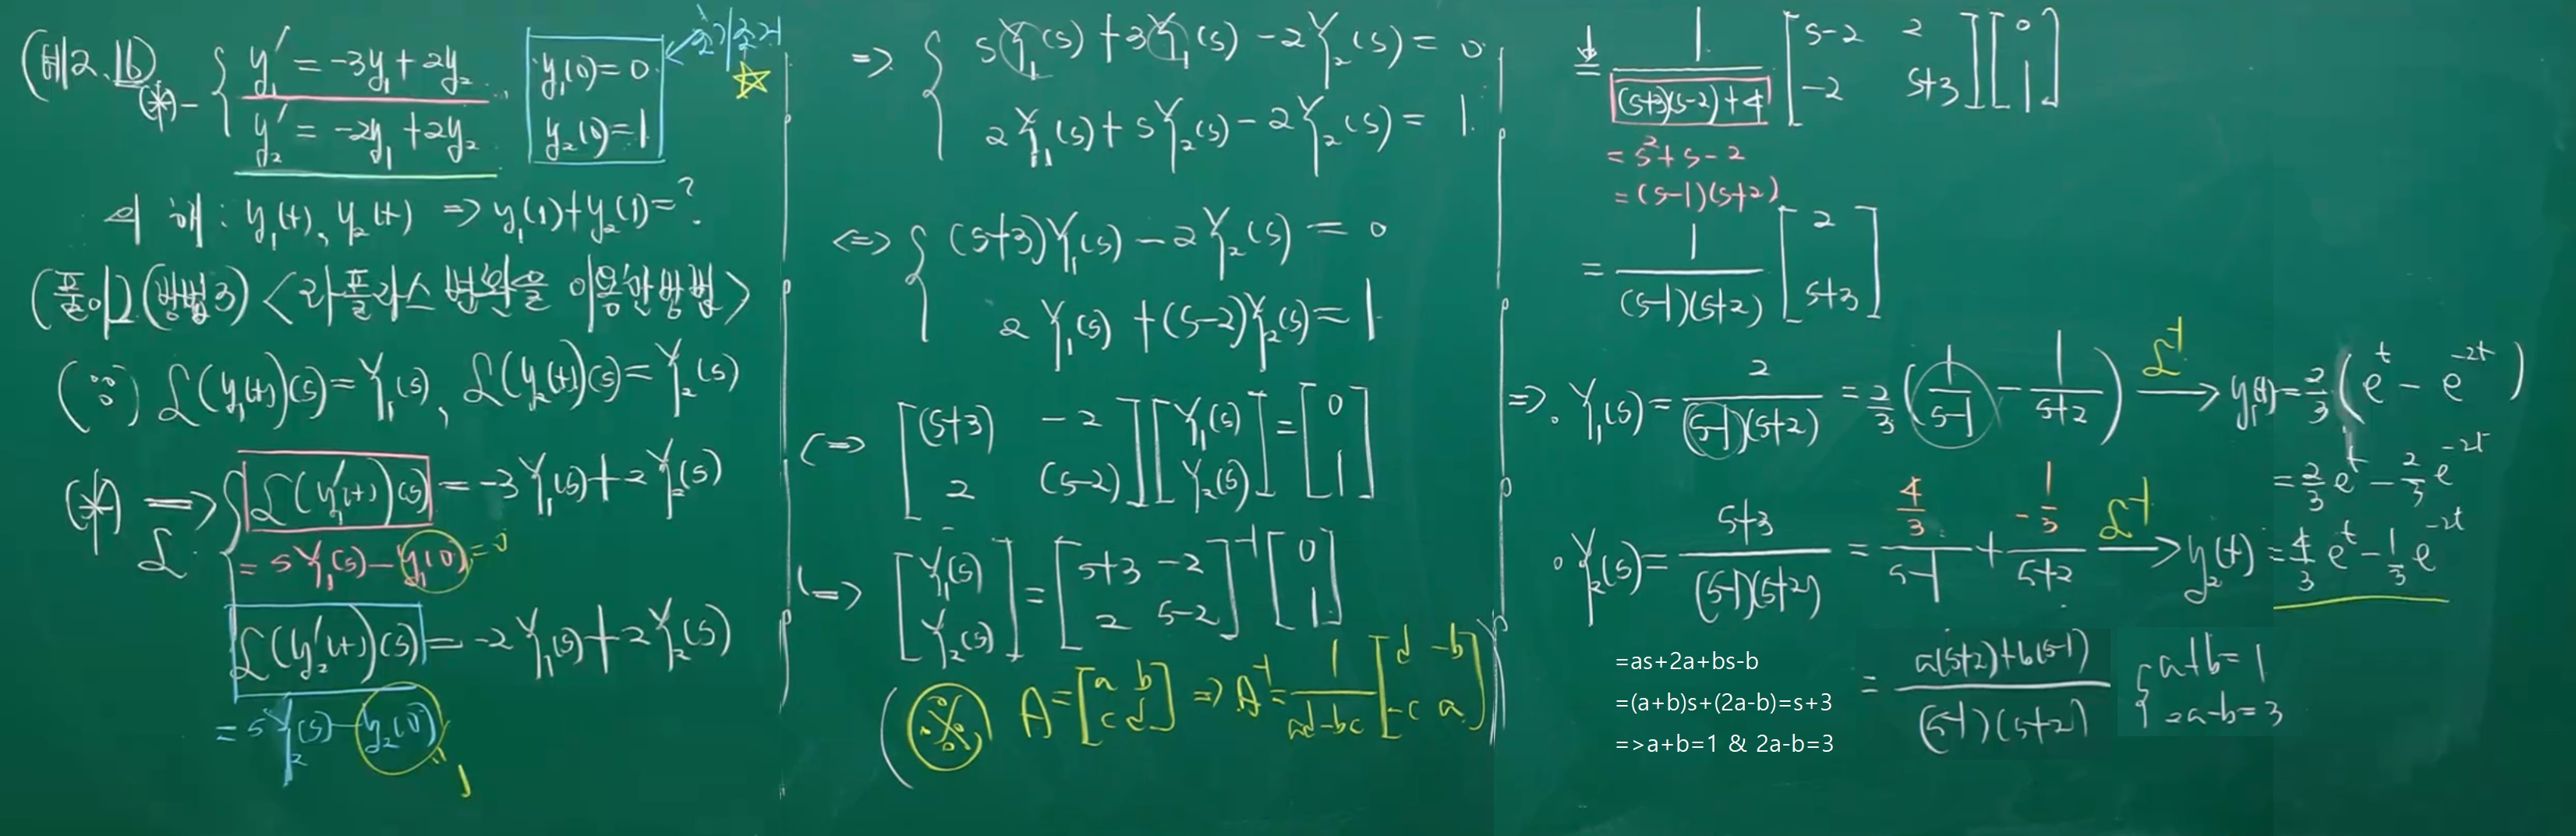 (예2.16)
(*)- { y₁' = -3y₁ + 2y₂
y₂' = -2y₁ + 2y₂
y₁(0) = 0
y₂(0) = 1
초기조건 ☆
의 해 : y₁(t), y₂(t) => y₁(1)+y₂(1)=?
(풀이) (방법3) <라플라스 변환을 이용한 방법>
(∵) ℒ(y₁(t))(s) = Y₁(s), ℒ(y₂(t))(s) = Y₂(s)
(*) =>ℒ { ℒ(y₁'(t))(s) = -3Y₁(s) + 2Y₂(s)
= sY₁(s) - y₁(0) =0
ℒ(y₂'(t))(s) = -2Y₁(s) + 2Y₂(s)
= sY₂(s) - y₂(0) =1
=> { sY₁(s) + 3Y₁(s) - 2Y₂(s) = 0
2Y₁(s) + sY₂(s) - 2Y₂(s) = 1
<=> { (s+3)Y₁(s) - 2Y₂(s) = 0
2Y₁(s) + (s-2)Y₂(s) = 1
<=> [(s+3) -2; 2 (s-2)] [Y₁(s); Y₂(s)] = [0; 1]
<=> [Y₁(s); Y₂(s)] = [s+3 -2; 2 s-2]⁻¹ [0; 1]
(※ A = [a b; c d] => A⁻¹ = 1/(ad-bc) [d -b; -c a])
= 1/((s+3)(s-2)+4) [s-2 2; -2 s+3] [0; 1]
= s²+s-2
= (s-1)(s+2)
= 1/((s-1)(s+2)) [2; s+3]
=> · Y₁(s) = 2/((s-1)(s+2)) = 2/3 (1/(s-1) - 1/(s+2)) ℒ⁻¹→ y₁(t) = 2/3 (e^t - e^-2t)
= 2/3 e^t - 2/3 e^-2t
· Y₂(s) = (s+3)/((s-1)(s+2)) = (4/3)/(s-1) + (-1/3)/(s+2) ℒ⁻¹→ y₂(t) = 4/3 e^t - 1/3 e^-2t
= (a(s+2)+b(s-1))/((s-1)(s+2)) { a+b=1
2a-b=3
=as+2a+bs-b
=(a+b)s+(2a-b)=s+3
=>a+b=1 & 2a-b=3